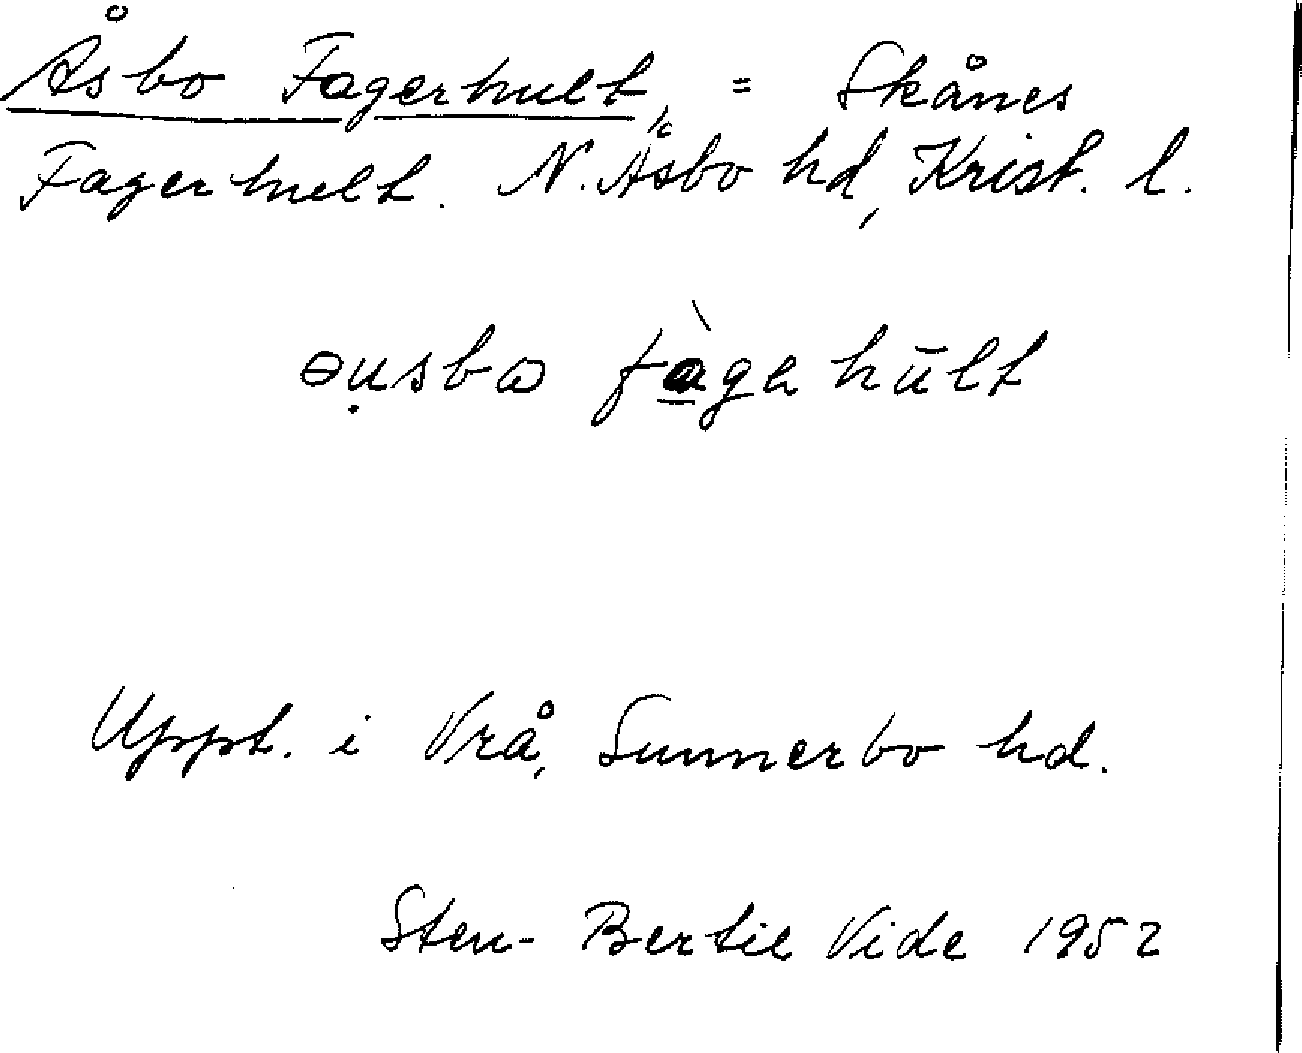 Åsbo Fagerhult, = Skånes
Fagerhult. N. Åsbo hd, Krist. l.
ɵụsbɷ fà̲gɐ hūlt
Uppt. i Vrå, Sunnerbo hd.
Sten-Bertil Vide 1952